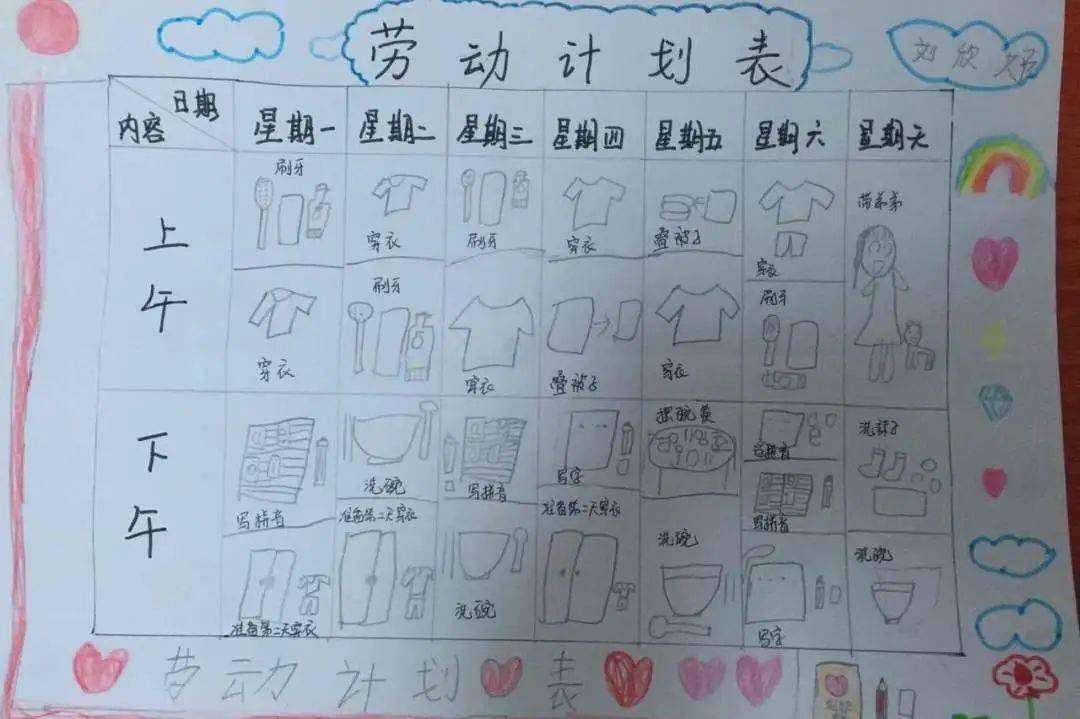 劳动计划表
刘欣妤
日期
内容
星期一 星期二 星期三 星期四 星期五 星期六 星期天
上午
刷牙 穿衣 刷牙 穿衣 叠被子 穿衣 带弟弟
穿衣 刷牙 穿衣 叠被子 穿衣 刷牙
下午
写拼音 洗碗 写拼音 写字 摆碗筷 写拼音 洗袜子
准备第二天穿衣 准备第二天穿衣 洗碗 准备第二天穿衣 洗碗 写字 洗碗
劳动计划表